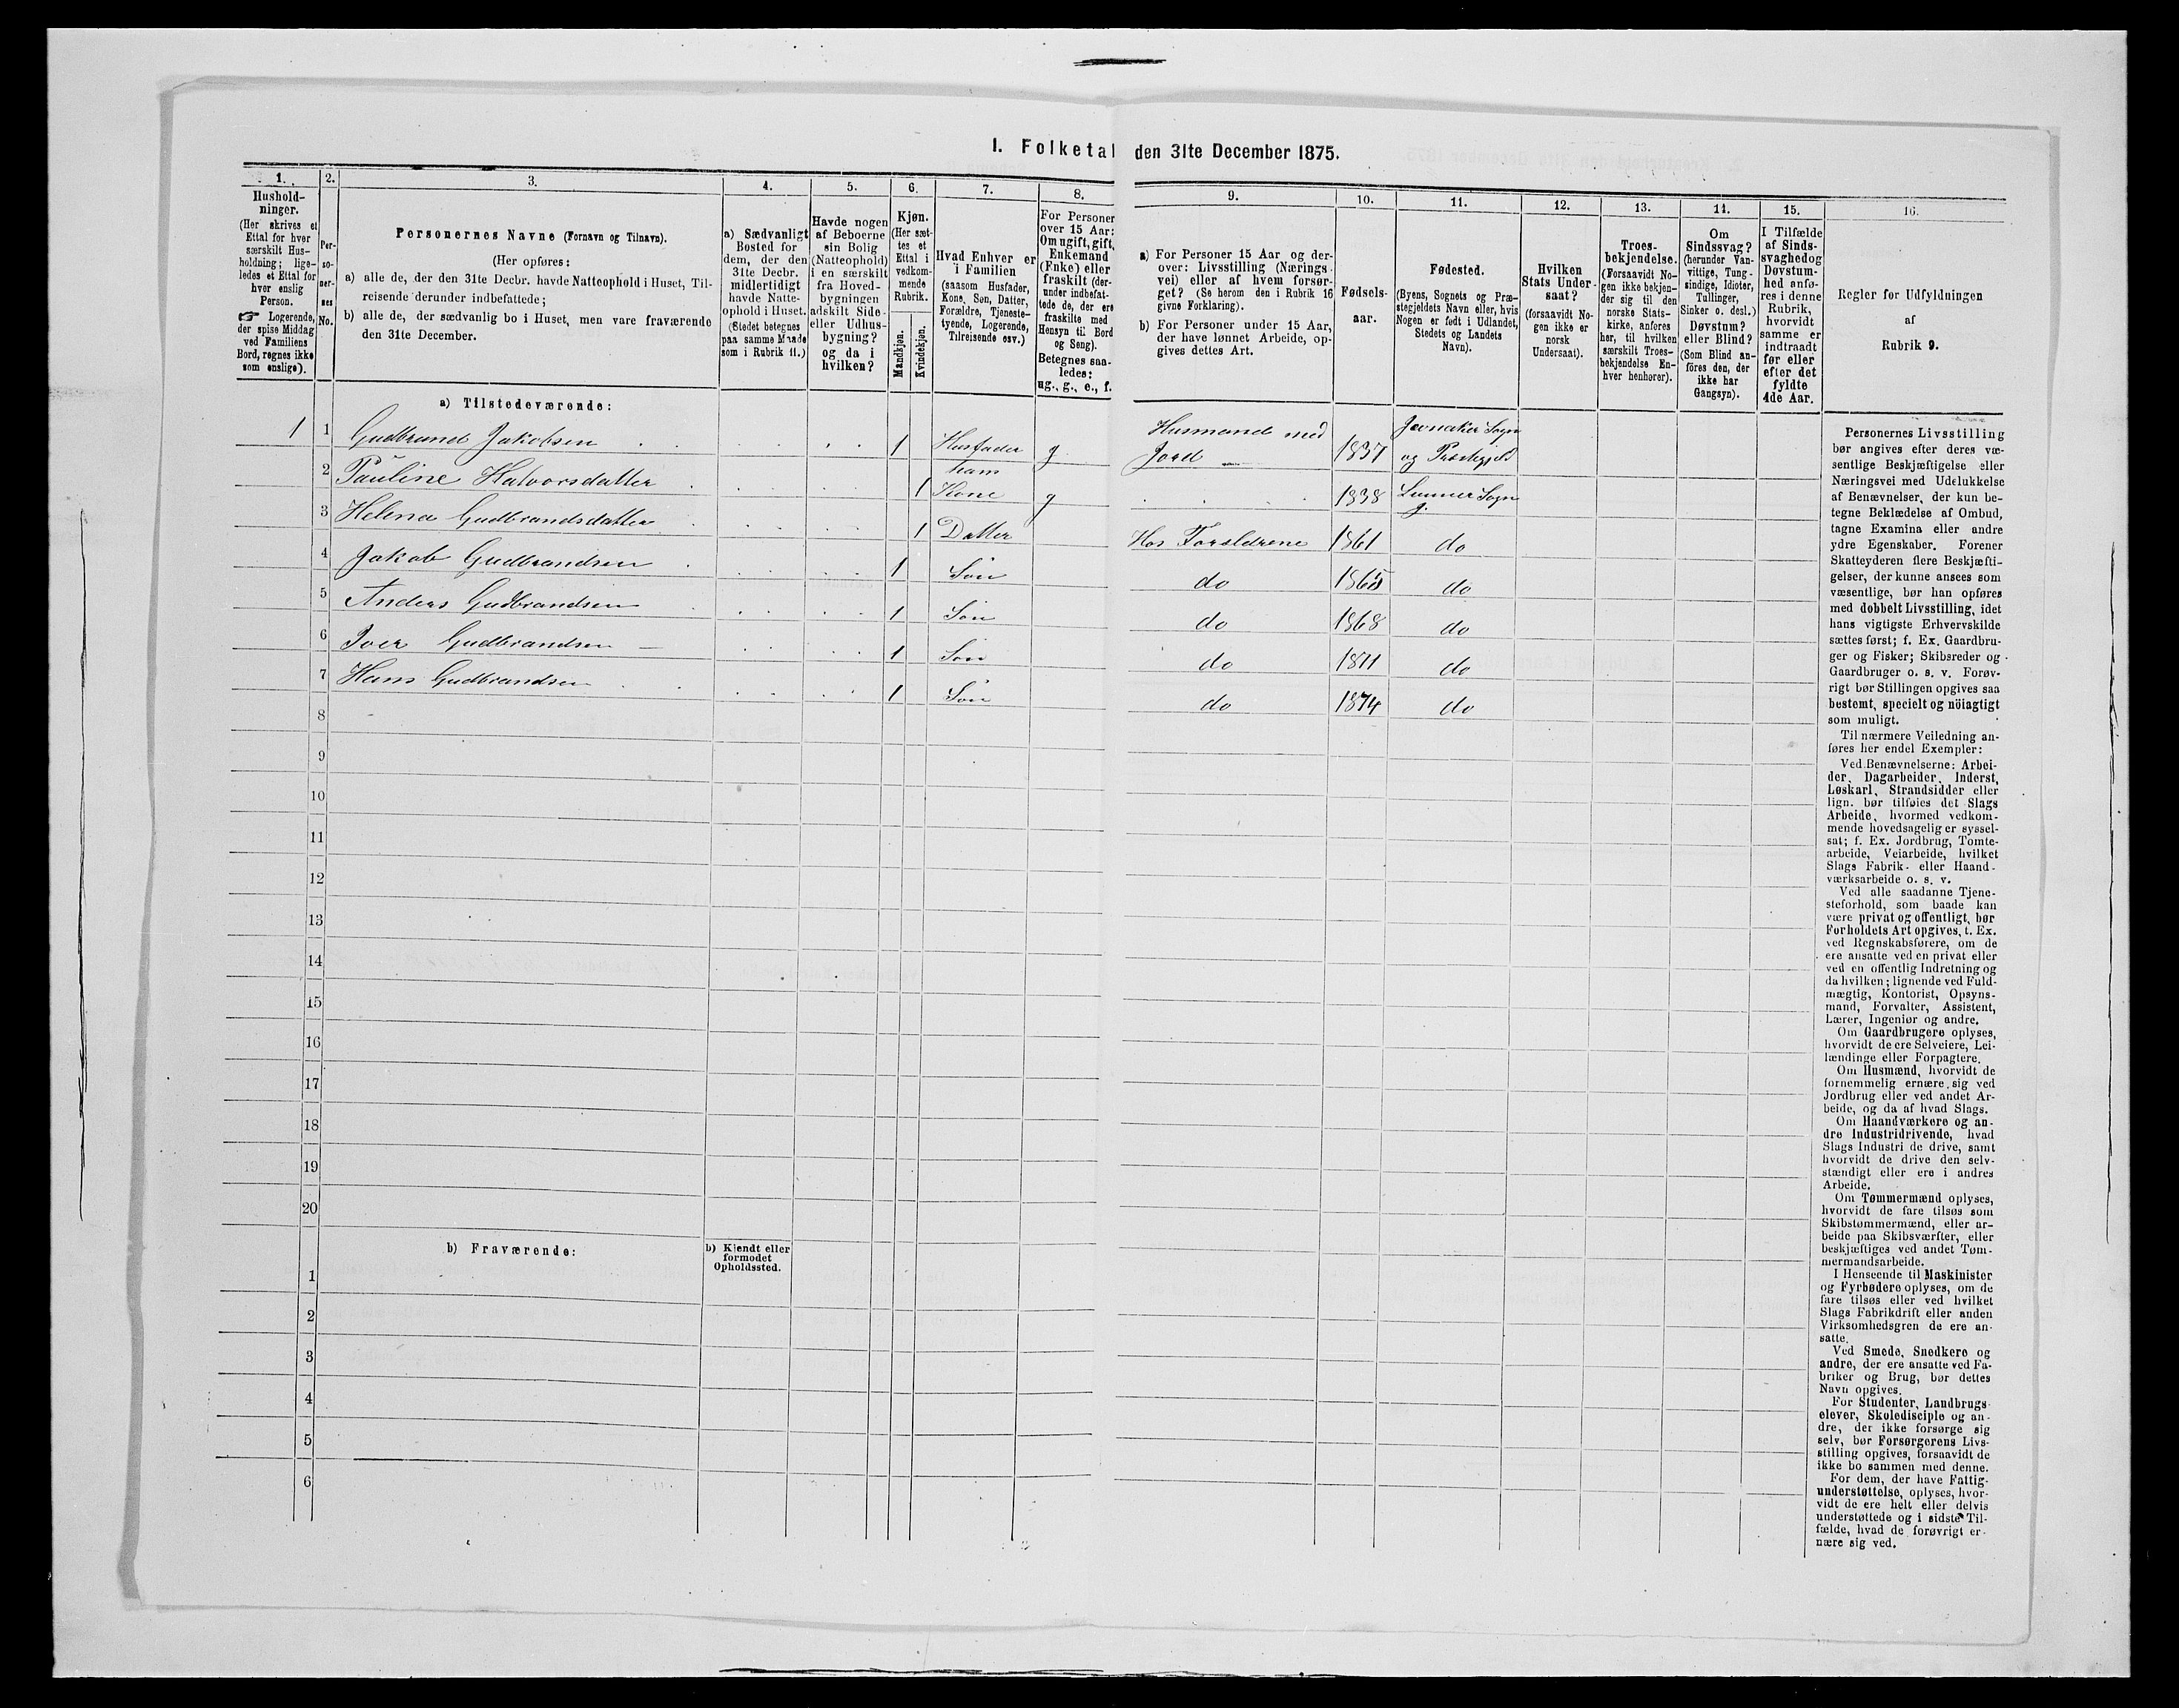 I. Folketal den 31te December 1875.
1.
Hushold-
ninger.
(Her skrives et
Ettal for hver
særskilt Hus-
holdning; lige-
ledes et Ettal for
hver enslig
Person.
☞ Logerende,
der spise Middag
ved Familiens
Bord, regnes ikke
som enslige).
2.
Per-
so-
ner-
nes
No.
3.
Personernes Navne (Fornavn og Tilnavn).
(Her opføres:
a) alle de, der den 31te Decbr. havde Natteophold i Huset, Til-
reisende derunder indbefattede;
b) alle de, der sædvanlig bo i Huset, men vare fraværende
den 31te December.
4.
a) Sædvanligt
Bosted for
dem, der den
31te Decbr.
midlertidigt
havde Natte-
ophold i Huset.
(Stedet betegnes
paa samme Maade
som i Rubrik 11.)
5.
Havde nogen
af Beboerne
sin Bolig
(Natteophold)
i en særskilt
fra Hoved-
bygningen
adskilt Side-
eller Udhus-
bygning?
og da i
hvilken?
6.
Kjøn.
(Her sæt-
tes et
Ettal i
vedkom-
mende
Rubrik.
Mandkjøn.
Kvindekjøn.
7.
Hvad Enhver er
i Familien
(saasom Husfader,
Kone, Søn, Datter,
Forældre, Tjeneste-
tyende, Logerende,
Tilreisende osv.)
8.
For Personer
over 15 Aar:
Om ugift, gift,
Enkemand
(Enke) eller
fraskilt (der-
under indbefat-
tede de, der ere
fraskilte med
Hensyn til Bord
og Seng).
Betegnes saa-
ledes:
ug., g., e., f.
9.
a) For Personer 15 Aar og der-
over: Livsstilling (Nærings-
vei) eller af hvem forsør-
get? (Se herom den i Rubrik 16
givne Forklaring).
b) For Personer under 15 Aar,
der have lønnet Arbeide, op-
gives dettes Art.
10.
Fødsels-
aar.
11.
Fødested.
(Byens, Sognets og Præ-
stegjeldets Navn eller, hvis
Nogen er født i Udlandet,
Stedets og Landets
Navn).
12.
Hvilken
Stats Under-
saat?
(forsaavidt No-
gen ikke er
norsk
Undersaat).
13.
Troes-
bekjendelse.
(Forsaavidt No-
gen ikke bekjen-
der sig til den
norske Stats-
kirke, anføres
her, til hvilken
særskilt Troes-
bekjendelse En-
hver henhører).
14.
Om
Sindssvag?
(herunder Van-
vittige, Tung-
sindige, Idioter,
Tullinger,
Sinker o. desl.)
Døvstum?
eller Blind?
(Som Blind an-
føres den, der
ikke har
Gangsyn).
15.
I Tilfælde
af Sinds-
svaghed og
Døvstum-
hed anfø-
res i denne
Rubrik,
hvorvidt
samme er
indtraadt
før eller
efter det
fyldte
4de Aar.
16.
Regler for Udfyldningen
af
Rubrik 9.
a) Tilstedeværende:
1 1 Gudbrand Jakobsen 1 Husfader g Husmand med Jord 1837 Jevnaker Sogn og Præstegjeld
2 Pauline Halvorsdatter 1 hans Kone g 1838 Lunner Sogn
3 Helena Gudbrandsdatter 1 Datter Hos Forældrene 1861 do
4 Jakob Gudbrandsen 1 Søn do 1865 do
5 Anders Gudbrandsen 1 Søn do 1868 do
6 Iver Gudbrandsen 1 Søn do 1871 do
7 Hans Gudbrandsen 1 Søn do 1874 do
8
9
10
11
12
13
14
15
16
17
18
19
20
b) Fraværende:
b) Kjendt eller
formodet
Opholdssted.
1
2
3
4
5
6
Personernes Livsstilling
bør angives efter deres væ-
sentlige Beskjæftigelse eller
Næringsvei med Udelukkelse
af Benævnelser, der kun be-
tegne Beklædelse af Ombud,
tagne Examina eller andre
ydre Egenskaber. Forener
Skatteyderen flere Beskjæfti-
gelser, der kunne ansees som
væsentlige, bør han opføres
med dobbelt Livsstilling, idet
hans vigtigste Erhvervskilde
sættes først; f. Ex. Gaardbru-
ger og Fisker; Skibsreder og
Gaardbruger o. s. v. Forøv-
rigt bør Stillingen opgives saa
bestemt, specielt og nöiagtigt
som muligt.
Til nærmere Veiledning an-
føres her endel Exempler:
Ved Benævnelserne: Arbei-
der, Dagarbeider, Inderst,
Løskarl, Strandsidder eller
lign. bør tilføies det Slags
Arbeide, hvormed vedkom-
mende hovedsagelig er syssel-
sat; f. Ex. Jordbrug, Tomte-
arbeide, Veiarbeide, hvilket
Slags Fabrik- eller Haand-
værksarbeide o. s. v.
Ved alle saadanne Tjene-
steforhold, som baade kan
være privat og offentligt, bør
Forholdets Art opgives, t. Ex.
ved Regnskabsførere, om de
ere ansatte ved en privat eller
ved en offentlig Indretning og
da hvilken; lignende ved Fuld-
mægtig, Kontorist, Opsyns-
mand, Forvalter, Assistent,
Lærer, Ingeniør og andre.
Om Gaardbrugere oplyses,
hvorvidt de ere Selveiere, Lei-
lændinge eller Forpagtere.
Om Husmænd, hvorvidt de
fornemmelig ernære sig ved
Jordbrug eller ved andet Ar-
beide, og da af hvad Slags.
Om Haandværkere og an-
dre Industridrivende, hvad
Slags Industri de drive, samt
hvorvidt de drive den selv-
stændigt eller ere i andres
Arbeide.
Om Tømmermænd oplyses,
hvorvidt de fare tilsøs som
Skibstømmermænd, eller ar-
beide paa Skibsværfter, eller
beskjæftiges ved andet Tøm-
mermandsarbeide.
I Henseende til Maskinister
og Fyrbødere oplyses, om de
fare tilsøs eller ved hvilket
Slags Fabrikdrift eller anden
Virksomhedsgren de ere an-
satte.
Ved Smede, Snedkere og
andre, der ere ansatte ved Fa-
briker og Brug, bør dettes
Navn opgives.
For Studenter, Landbrugs-
elever, Skoledisciple og an-
dre, der ikke forsørge sig
selv, bør Forsørgerens Livs-
stilling opgives, forsaavidt de
ikke bo sammen med denne.
For dem, der have Fattig-
understøttelse, oplyses, hvor-
vidt de ere helt eller delvis
understøttede og i sidste Til-
fælde, hvad de forøvrigt er-
nære sig ved.